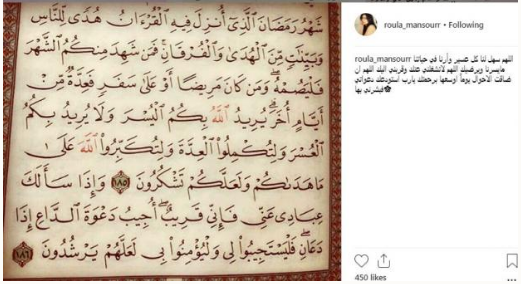 شَهْرُ رَمَضَانَ الَّذِي أُنزِلَ فِيهِ الْقُرْءَانُ هُدًى لِّلنَّاسِ
وَبَيِّنَاتٍ مِّنَ الْهُدَىٰ وَالْفُرْقَانِ فَمَن شَهِدَ مِنكُمُ الشَّهْرَ
فَلْيَصُمْهُ وَمَن كَانَ مَرِيضًا أَوْ عَلَىٰ سَفَرٍ فَعِدَّةٌ مِّنْ
أَيَّامٍ أُخَرَ يُرِيدُ اللَّهُ بِكُمُ الْيُسْرَ وَلَا يُرِيدُ بِكُمُ
الْعُسْرَ وَلِتُكْمِلُوا الْعِدَّةَ وَلِتُكَبِّرُوا اللَّهَ عَلَىٰ
مَا هَدَىٰكُمْ وَلَعَلَّكُمْ تَشْكُرُونَ ١٨٥ وَإِذَا سَأَلَكَ
عِبَادِي عَنِّي فَإِنِّي قَرِيبٌ أُجِيبُ دَعْوَةَ الدَّاعِ إِذَا
دَعَانِ فَلْيَسْتَجِيبُوا لِي وَلْيُؤْمِنُوا بِي لَعَلَّهُمْ يَرْشُدُونَ ١٨٦
roula_mansourr • Following
roula_mansourr اللهم سهل لنا كل عسير وأرنا في حياتنا
مايسرنا ويرضيك اللهم لاتشغلني عنك وقربني اليك اللهم ان
ضاقت الأحوال يوماً أوسعها برحمتك يارب استودعتك دعواتي
فبشرني بها
450 likes